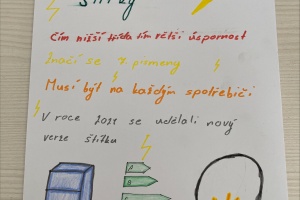 Štítky
Čím nižší třída tím větší úspornost
Značí se z písmeny
Musí být na každým spotřebiči
V roce 2021 se udělali nový
verze štítku
A